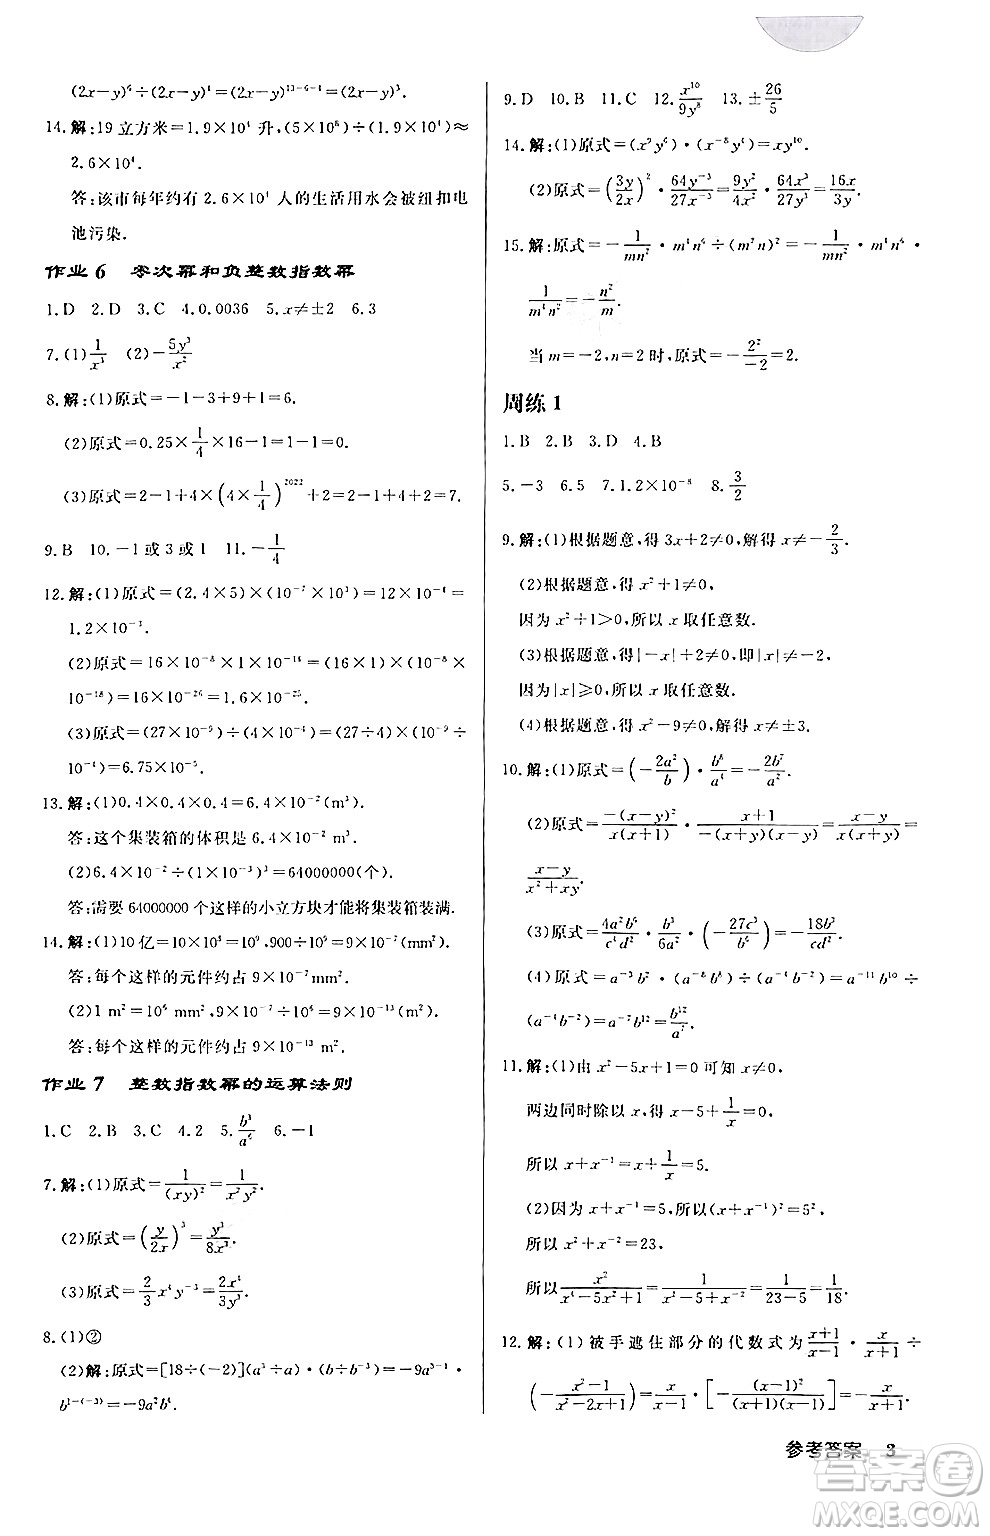 (2x-y)⁶÷(2x-y)¹=(2x-y)¹³⁻⁶⁻¹=(2x-y)⁶.
14.解:19 立方米=1.9×10⁴ 升,(5×10⁸)÷(1.9×10⁴)≈
2.6×10⁴.
答:该市每年约有 2.6×10⁴ 人的生活用水会被纽扣电
池污染.
作业 6 零次幂和负整数指数幂
1.D 2.D 3.C 4.0.0036 5.x≠±2 6.3
7.(1)1/x³ (2)-5y³/x²
8.解:(1)原式=-1-3+9+1=6.
(2)原式=0.25×1/4×16-1=1-1=0.
(3)原式=2-1+4×(4×1/4)²⁰²²+2=7.
9.B 10.-1 或 3 或 1 11.-1/4
12.解:(1)原式=(2.4×5)×(10⁻⁷×10³)=12×10⁻⁴=
1.2×10⁻³.
(2)原式=16×10⁻⁸×1×10⁻¹⁸=(16×1)×(10⁻⁸×
10⁻¹⁸)=16×10⁻²⁶=1.6×10⁻²⁵.
(3)原式=(27×10⁻⁹)÷(4×10⁻⁴)=(27÷4)×(10⁻⁹÷
10⁻⁴)=6.75×10⁻⁵.
13.解:(1)0.4×0.4×0.4=6.4×10⁻²(m³)
答:这个集装箱的体积是 6.4×10⁻² m³.
(2)6.4×10⁻²÷(1×10⁻³)³=64000000(个).
答:需要 64000000 个这样的小立方块才能将集装箱装满.
14.解:(1)10 亿=10×10⁸=10⁹,900÷10⁹=9×10⁻⁷(mm²)
答:每个这样的元件约占 9×10⁻⁷ mm².
(2)1 m²=10⁶ mm²,9×10⁻⁷÷10⁶=9×10⁻¹³(m²)
答:每个这样的元件约占 9×10⁻¹³ m².
作业 7 整数指数幂的运算法则
1.C 2.B 3.C 4.2 5.b³/a⁶ 6.-1
7.解:(1)原式=1/(xy)²=1/x²y².
(2)原式=(y/2x)³=y³/8x³.
(3)原式=2/3x⁴y⁻³=2x⁴/3y³.
8.(1)②
(2)解:原式=[18÷(-2)](a³÷a)·(b÷b⁻³)=-9a³⁻¹·
b¹⁻⁽⁻³⁾=-9a²b⁴.
9.D 10.B 11.C 12.x¹⁰/9y⁸ 13.±26/5
14.解:(1)原式=(x⁹y⁶)·(x⁻⁸y⁴)=xy¹⁰.
(2)原式=(3y/2x)²·64y⁻³/27x⁻³=9y²/4x²·64x³/27y³=16x/3y.
15.解:原式=-1/mn²·m⁴n⁶÷(m²n)⁴=-1/mn²·m⁴n⁶·
1/m⁴n⁸=-n²/m.
当 m=-2,n=2 时,原式=-2²/-2=2.
周练 1
1.B 2.B 3.D 4.B
5.-3 6.5 7.1.2×10⁻⁸ 8.3/2
9.解:(1)根据题意,得 3x+2≠0,解得 x≠-2/3.
(2)根据题意,得 x²+1≠0,
因为 x²+1>0,所以 x 取任意数.
(3)根据题意,得|-x|+2≠0,即|x|≠-2,
因为|x|≥0,所以 x 取任意数.
(4)根据题意,得 x²-9≠0,解得 x≠±3.
10.解:(1)原式=(-2a²/b)·b⁸/a⁴=-2b⁷/a².
(2)原式=-(x-y)²/x(x+1)·x+1/-(x+y)(x-y)=x-y/x(x+y)=
x-y/x²+xy.
(3)原式=4a²b⁶/c⁴d²·b³/6a²·(-27c³/b⁶)=-18b³/cd².
(4)原式=a⁻³b²·(a⁻⁸b⁸)÷(a⁻⁴b⁻²)=a⁻¹¹b¹⁰÷
(a⁻⁴b⁻²)=a⁻⁷b¹²=b¹²/a⁷.
11.解:(1)由 x²-5x+1=0 得,x≠0,
两边同时除以 x,得 x-5+1/x=0,
所以 x+x⁻¹=x+1/x=5.
(2)因为 x+x⁻¹=5,所以(x+x⁻¹)²=5²,
所以 x²+x⁻²=23,
所以x²/x⁴-5x²+1=1/x²+x⁻²-5=1/23-5=1/18.
12.解:(1)被手遮住部分的代数式为x+1/x-1·x/x+1÷
(-x²-1/x²-2x+1)=x/x-1·[-(x-1)²/(x+1)(x-1)]=-x/x+1.
参考答案 3
答案圈
MXQE.COM